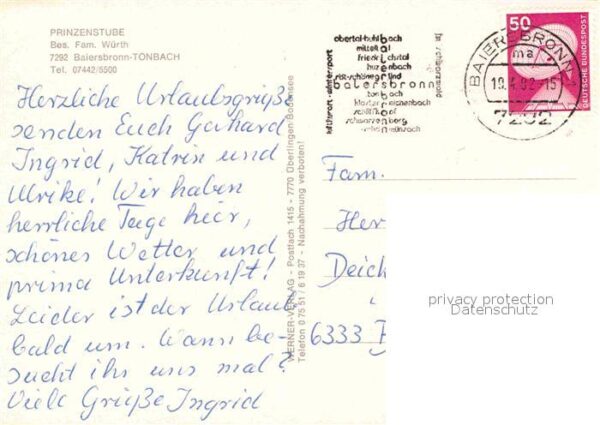 PRINZENSTUBE
Bes. Fam. Würth
7292 Baiersbronn-TONBACH
Tel. 07442/5500
Herzliche Urlaubsgrüße
senden Euch Gerhard
Ingrid, Katrin und
Ulrike! Wir haben
herrliche Tage hier,
schönes Wetter und
prima Unterkunft!
Leider ist der Urlaub
bald um. Wann be-
sucht ihr uns mal?
Viele Grüße Ingrid
WERNER-VERLAG - Postfach 1415 - 7770 Überlingen/Bodensee
Telefon 0 75 51 / 6 19 37 - Nachahmung verboten!
luftkurort · wintersport
obertal-buhlbach
mitteltal
friedrichstal
huzenbach
röt-schönegründ
baiersbronn
tonbach
klosterreichenbach
schwarzenberg
schönmünzach
im schwarzwald
BAIERSBRONN
ma
19.4.82-15
7292
50
DEUTSCHE BUNDESPOST
Fam.
Her
Deich
6333
privacy protection
Datenschutz